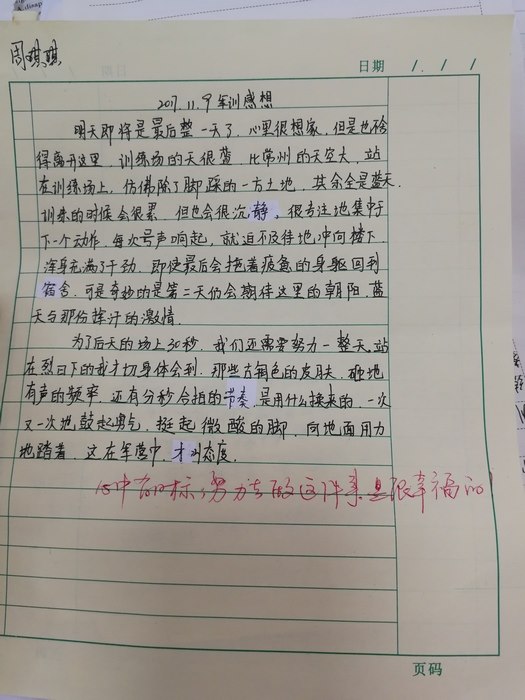 周琪琪
日期 / . / /
2017.11.9 军训感想
明天即将是最后整一天了，心里很想家，但是也舍
得离开这里，训练场的天很蓝，比常州的天空大，站
在训练场上，仿佛除了脚踩的一方土地，其余全是蓝天.
训练的时候会很累，但也会很沉静，很专注地集中于
下一个动作，每次号声响起，就迫不及待地冲向楼下，
浑身充满了干劲，即使最后会拖着疲惫的身躯回到
宿舍，可是奇妙的是第二天仍会期待这里的朝阳，蓝
天与那份挥汗的激情.
为了后天的场上30秒，我们还需要努力一整天，站
在烈日下的我才切身体会到，那些古铜色的皮肤，砸地
有声的频率，还有分秒合拍的节奏，是用什么换来的，一次
又一次地鼓起勇气，挺起微酸的脚，向地面用力
地踏着，这在军营中，才叫态度.
心中有目标，努力去做这件事是很幸福的
页码